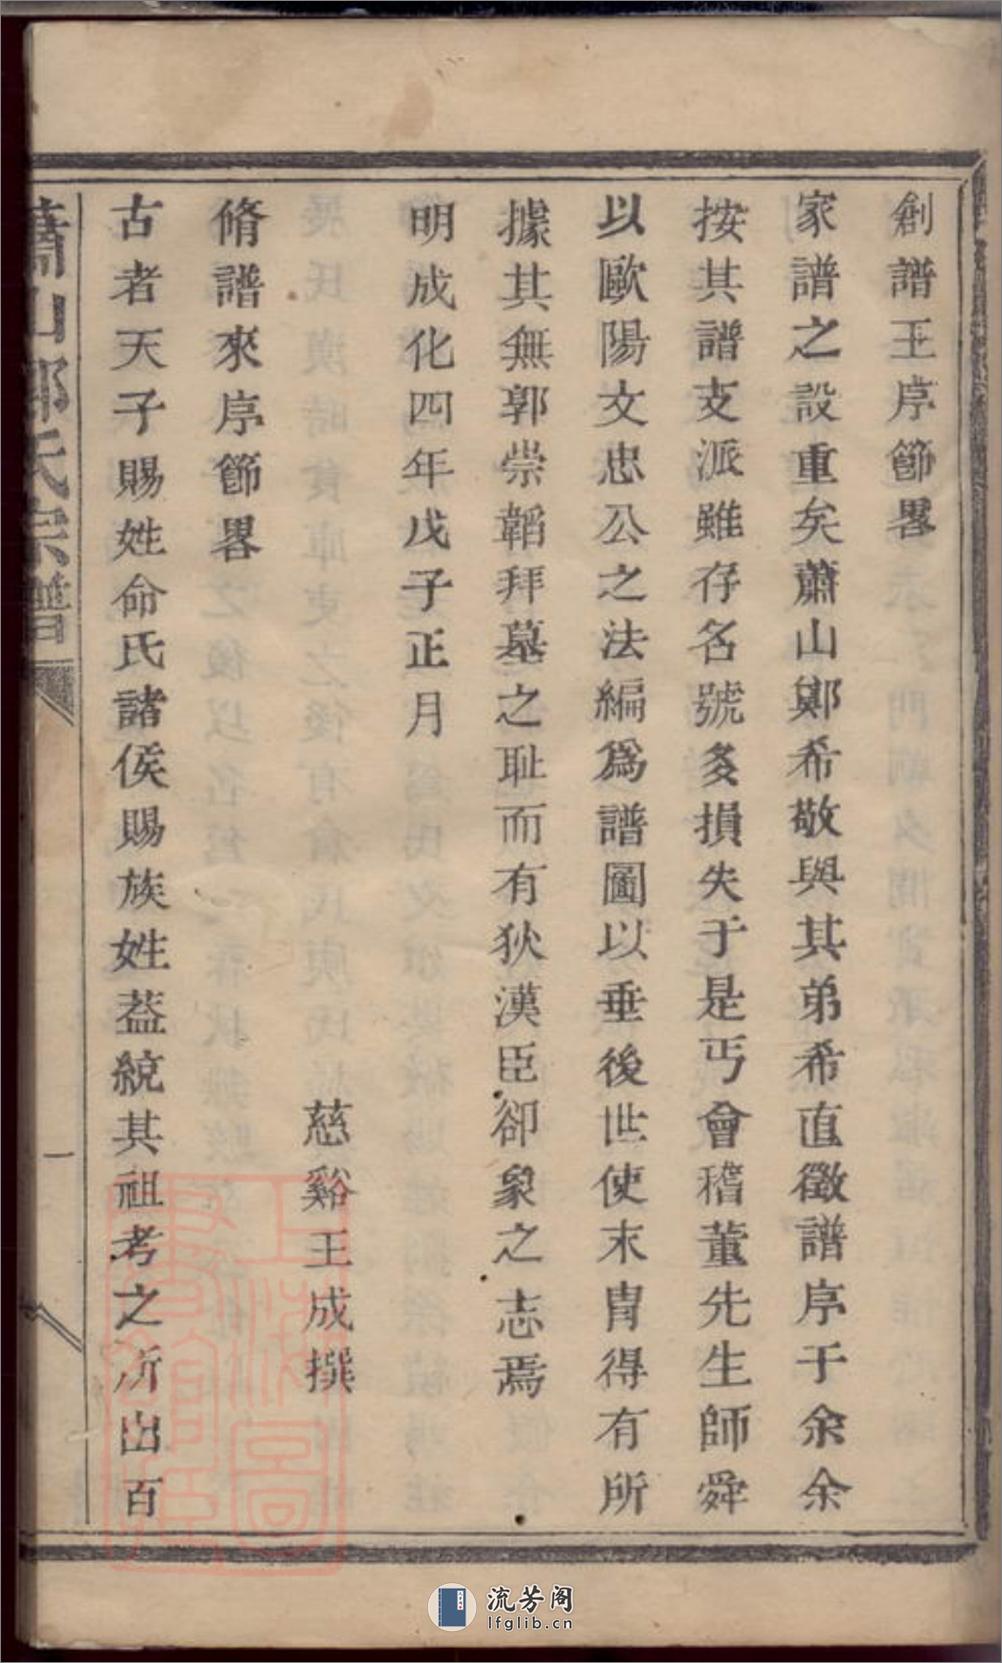 創譜王序節畧
家譜之設重矣蕭山鄭希敬與其弟希直徵譜序于余余
按其譜支派雖存名號多損失于是丐會稽董先生師舜
以歐陽文忠公之法編爲譜圖以垂後世使末胄得有所
據其無郭崇韜拜墓之耻而有狄漢臣卻象之志焉
明成化四年戊子正月
慈谿王成撰
脩譜來序節畧
古者天子賜姓命氏諸侯賜族姓葢統其祖考之所出百
蕭山鄭氏宗譜
一
上海圖書館藏
流芳阁
lfglib.cn